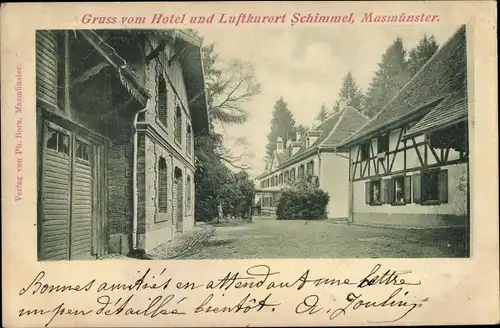 Gruss vom Hotel und Luftkurort Schimmel, Masmünster.
Verlag von Ph. Born, Masmünster.
Bonnes amitiés en attendant une lettre
un peu détaillée bientôt. A. Joulin